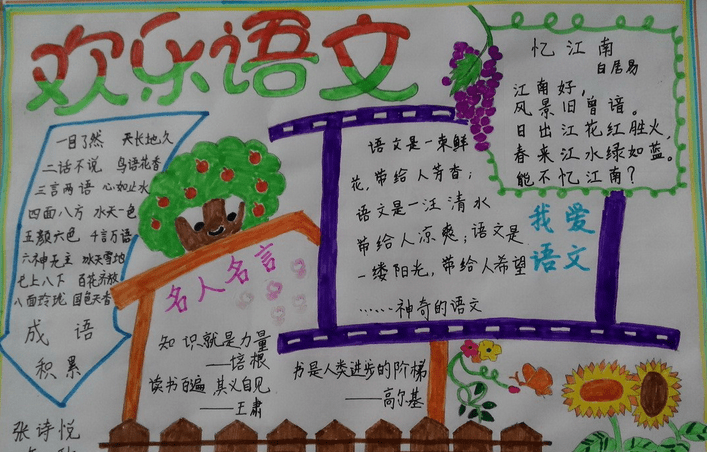 欢乐语文
一目了然 天长地久
二话不说 鸟语花香
三言两语 心如止水
四面八方 水天一色
五颜六色 千言万语
六神无主 冰天雪地
七上八下 百花齐放
八面玲珑 国色天香
成语
积累
张诗悦
名人名言
知识就是力量
——培根
读书百遍 其义自见
——王肃
书是人类进步的阶梯
——高尔基
语文是一束鲜
花,带给人芳香;
语文是一汪清水
带给人凉爽;语文是
一缕阳光,带给人希望
……神奇的语文
忆江南
白居易
江南好,
风景旧曾谙。
日出江花红胜火,
春来江水绿如蓝。
能不忆江南?
我爱
语文